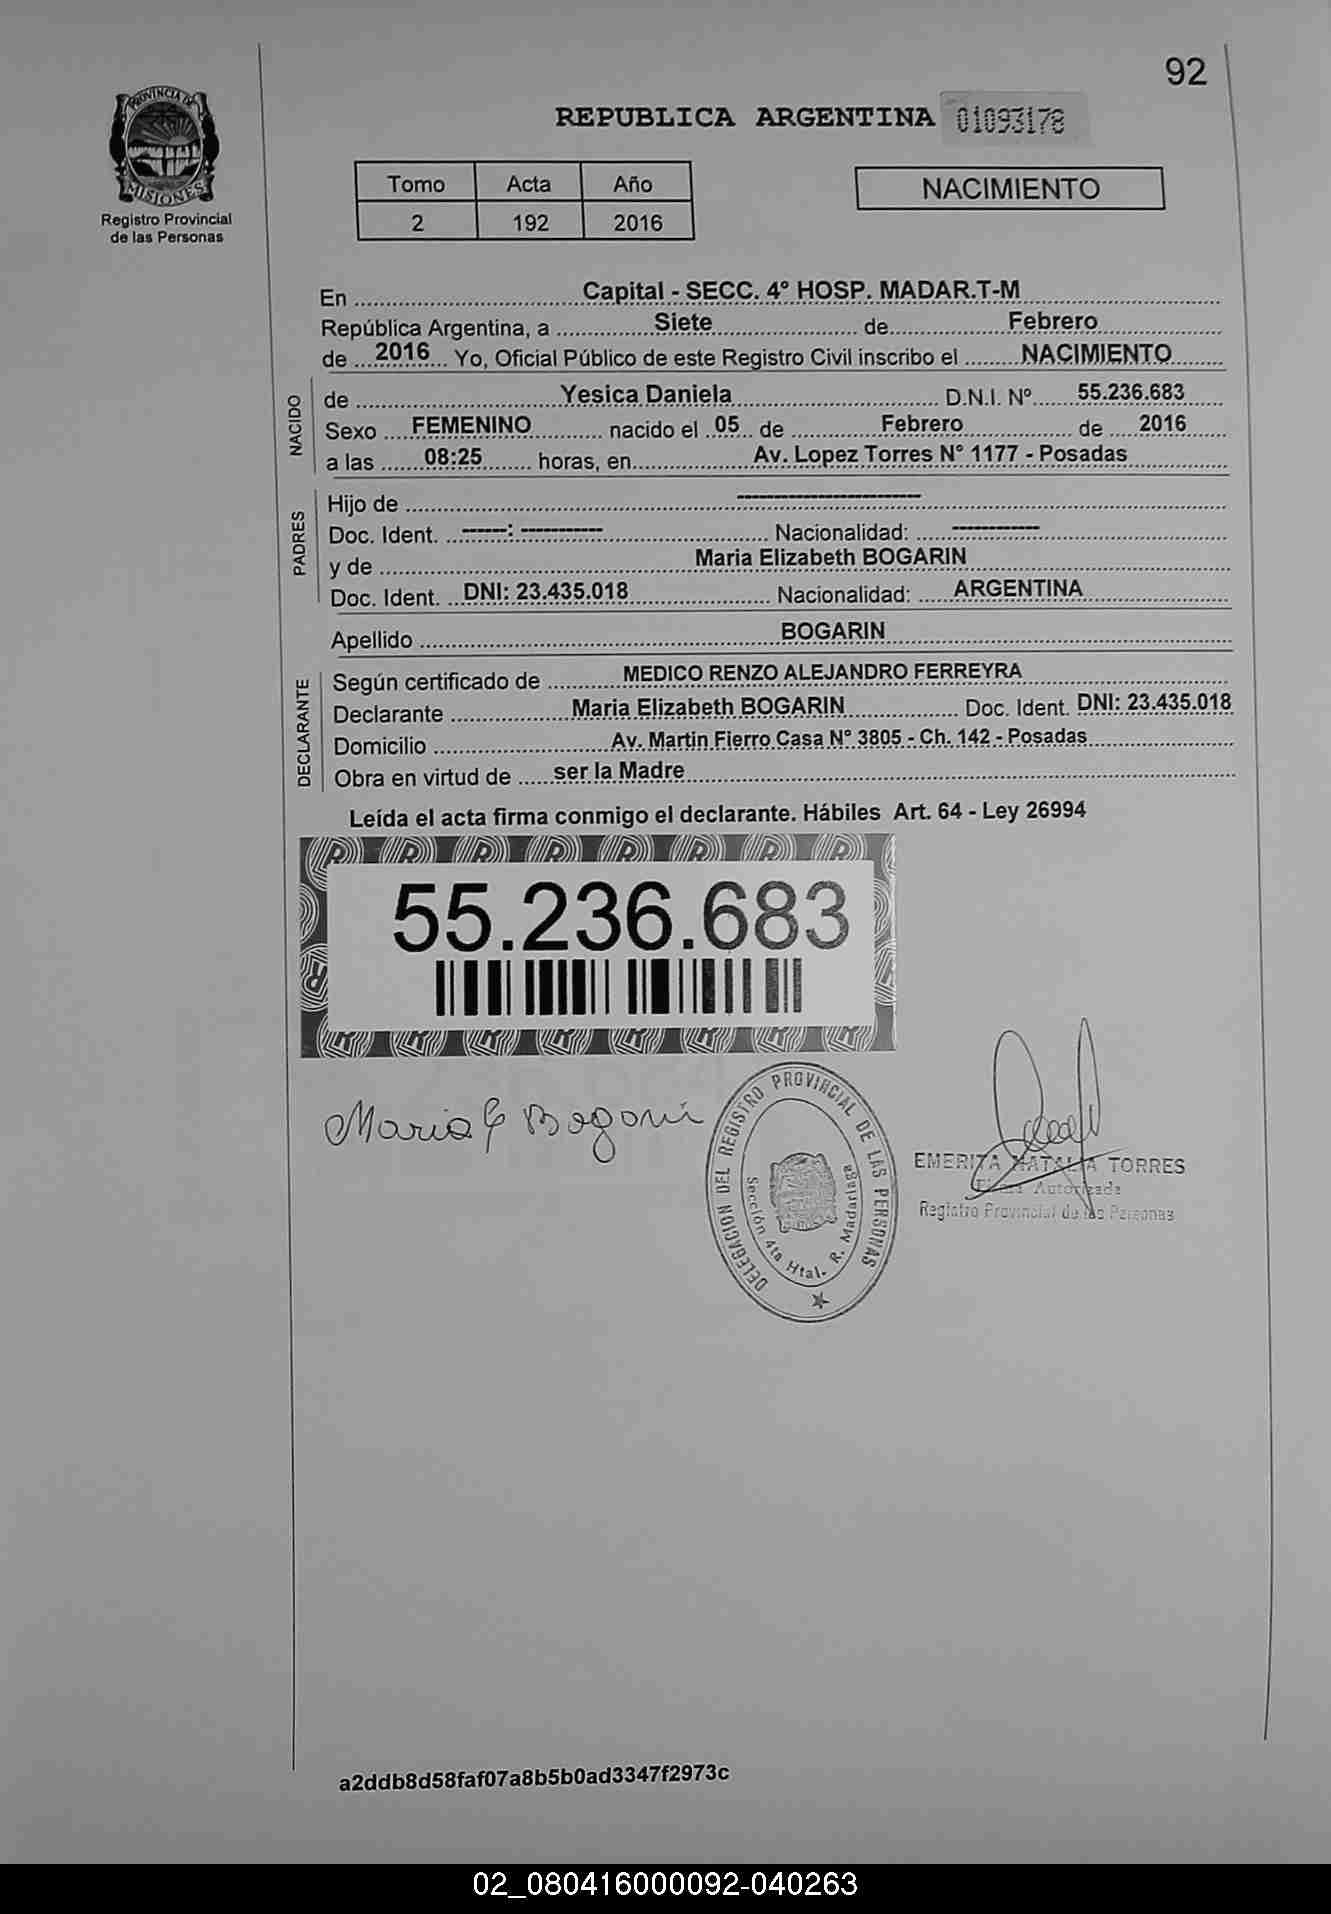 92
PROVINCIA DE
MISIONES
Registro Provincial
de las Personas
REPUBLICA ARGENTINA 01093178
Tomo Acta Año
2 192 2016
NACIMIENTO
En Capital - SECC. 4° HOSP. MADAR.T-M
República Argentina, a Siete de Febrero
de 2016 Yo, Oficial Público de este Registro Civil inscribo el NACIMIENTO
NACIDO
de Yesica Daniela D.N.I. Nº 55.236.683
Sexo FEMENINO nacido el 05 de Febrero de 2016
a las 08:25 horas, en Av. Lopez Torres N° 1177 - Posadas
PADRES
Hijo de --------------------
Doc. Ident. ------: ---------- Nacionalidad: ----------
y de Maria Elizabeth BOGARIN
Doc. Ident. DNI: 23.435.018 Nacionalidad: ARGENTINA
Apellido BOGARIN
DECLARANTE
Según certificado de MEDICO RENZO ALEJANDRO FERREYRA
Declarante Maria Elizabeth BOGARIN Doc. Ident. DNI: 23.435.018
Domicilio Av. Martin Fierro Casa N° 3805 - Ch. 142 - Posadas
Obra en virtud de ser la Madre
Leída el acta firma conmigo el declarante. Hábiles Art. 64 - Ley 26994
55.236.683
Maria E Bogarin
DELEGACION DEL REGISTRO PROVINCIAL DE LAS PERSONAS
Sección 4ta Htal. R. Madariaga
EMERITA NATALIA TORRES
Firma Autorizada
Registro Provincial de las Personas
a2ddb8d58faf07a8b5b0ad3347f2973c
02_080416000092-040263